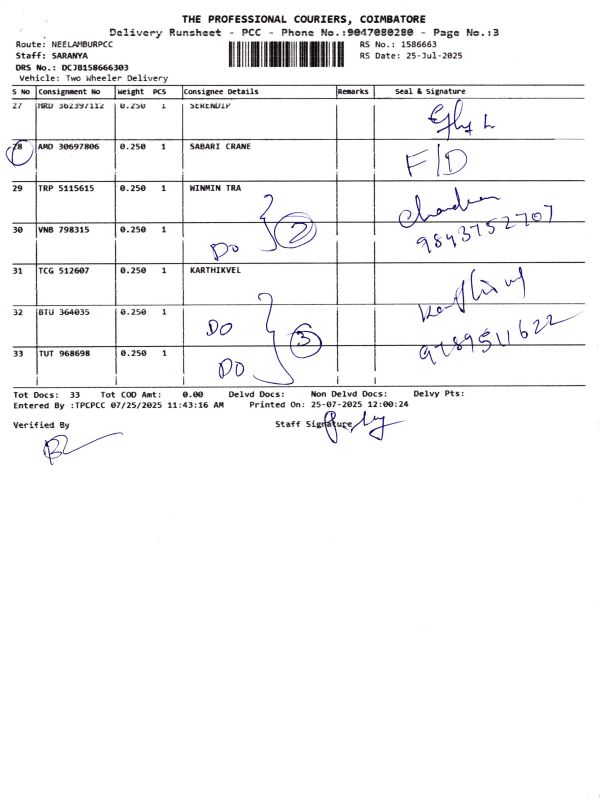 THE PROFESSIONAL COURIERS, COIMBATORE
Delivery Runsheet - PCC - Phone No.:9047080280 - Page No.:3
Route: NEELAMBURPCC RS No.: 1586663
Staff: SARANYA RS Date: 25-Jul-2025
DRS No.: DCJB158666303
Vehicle: Two Wheeler Delivery
S No Consignment No Weight PCS Consignee Details Remarks Seal & Signature
27 MRD 362397112 0.250 1 SERENDIP
28 AMD 30697806 0.250 1 SABARI CRANE F/D
29 TRP 5115615 0.250 1 WINMIN TRA Chandran
30 VNB 798315 0.250 1 Do 2 9843752707
31 TCG 512607 0.250 1 KARTHIKVEL
32 BTU 364035 0.250 1 Do 3 9789511622
33 TUT 968698 0.250 1 Do
Tot Docs: 33 Tot COD Amt: 0.00 Delvd Docs: Non Delvd Docs: Delvy Pts:
Entered By :TPCPCC 07/25/2025 11:43:16 AM Printed On: 25-07-2025 12:00:24
Verified By Staff Signature